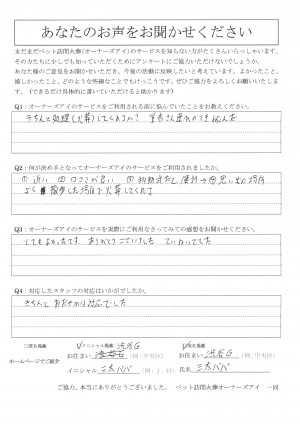 あなたのお声をお聞かせください
まだまだペット訪問火葬(オーナーズアイ)のサービスを知らない方がたくさんいらっしゃいます。
その方たちに少しでも知っていただくためにアンケートにご協力いただけないでしょうか。
あなた様のご意見をお聞かせいただき、今後の活動に反映したいと考えています。よかったこと、
嬉しかったこと、どのような些細なことでもけっこうです。ぜひご協力をよろしくお願いいたしま
す。(できるだけ具体的に書いていただけると助かります)
Q1:オーナーズアイのサービスをご利用される前に悩んでいたことをお教えください。
きちんと処理(火葬)してくれるか?
Q2:何が決め手となってオーナーズアイのサービスをご利用されましたか。
① 近い ② 口コミが良い ③
よく 散歩した場所で火葬してくれて
Q3:オーナーズアイのサービスを実際にご利用なさってみての感想をお聞かせください。
とてもよかったです。ありがとうございました
Q4:対応したスタッフの対応はいかがでしたか。
きちんと おだやかな対応でした
ホームページでご紹介
□匿名掲載 イニシャル掲載 実名掲載
お住まい 渋谷区 (例:中央区) お住まい 渋谷区 (例:中央区)
イニシャル 三太パパ (例:J.H) 氏名 三太パパ
ご協力、本当にありがとうございました。 ペット訪問火葬オーナーズアイ 一同